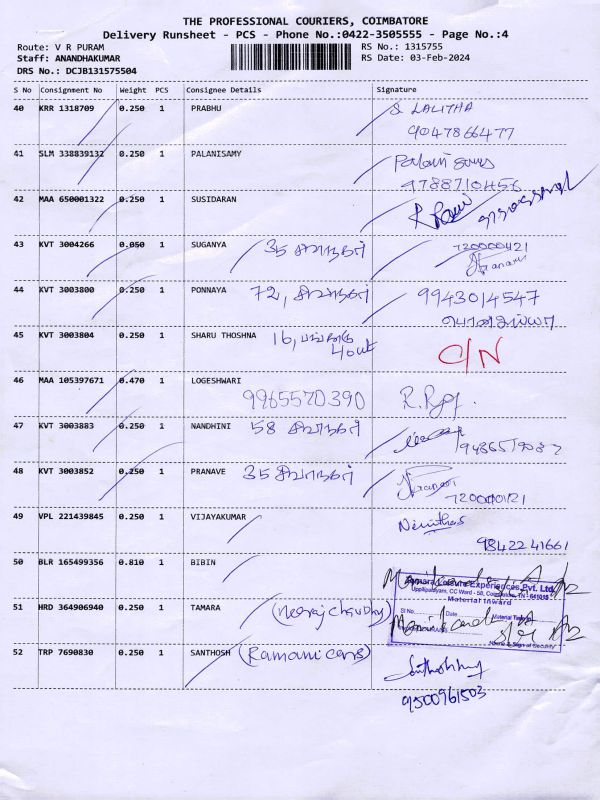 THE PROFESSIONAL COURIERS, COIMBATORE
Delivery Runsheet - PCS - Phone No.:0422-3505555 - Page No.:4
Route: V R PURAM RS No.: 1315755
Staff: ANANDHAKUMAR RS Date: 03-Feb-2024
DRS No.: DCJB131575504
S No Consignment No Weight PCS Consignee Details Signature
40 KRR 1318709 0.250 1 PRABHU S LALITHA
9047866477
41 SLM 338839132 0.250 1 PALANISAMY
9788710456
42 MAA 650001322 0.250 1 SUSIDARAN
43 KVT 3004266 0.050 1 SUGANYA 35 720000121
44 KVT 3003800 0.250 1 PONNAYA 72, 9943014547
45 KVT 3003804 0.250 1 SHARU THOSHNA 16, C/N
46 MAA 105397671 0.470 1 LOGESHWARI
9965570390
47 KVT 3003883 0.250 1 NANDHINI 58
48 KVT 3003852 0.250 1 PRANAVE 35
49 VPL 221439845 0.250 1 VIJAYAKUMAR
9842241661
50 BLR 165499356 0.810 1 BIBIN
Amara Leisure Experiences Pvt. Ltd.
Uppilipalayam, CC Ward - 58, Coimbatore, TN - 641015
Material Inward
51 HRD 364906940 0.250 1 TAMARA (Neeraj Chaudhy) Sl No. Date Material Time
Name & Sign of Security
52 TRP 7690830 0.250 1 SANTHOSH (Ramani cars)
9500961503